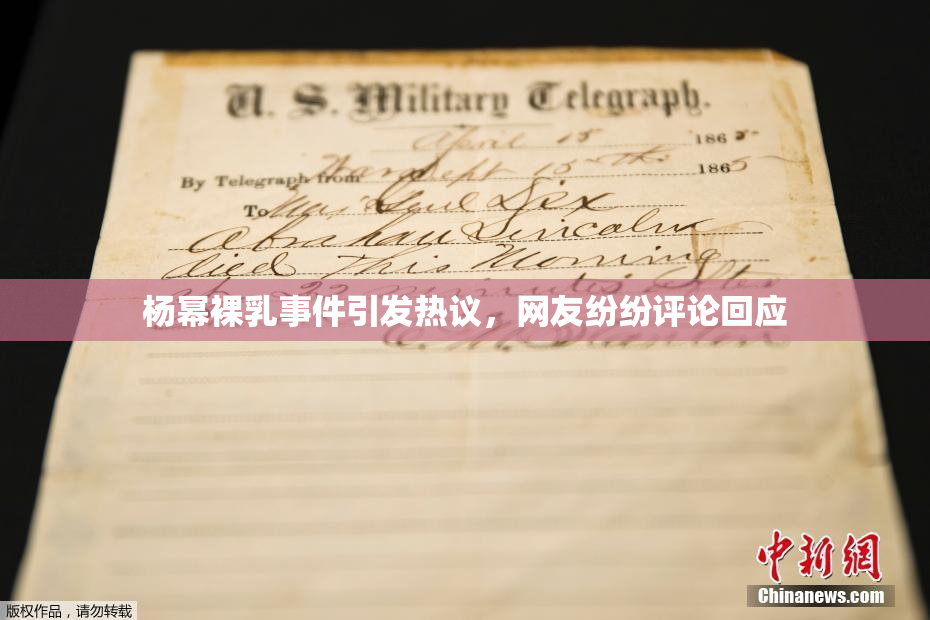 U. S. Military Telegraph.
April 15 1865
By Telegraph from War Dept 15th 1865
To Maj Genl Dix
Abraham Lincoln
died This Morning
at 22 minutes after
杨幂裸乳事件引发热议，网友纷纷评论回应
E. M. Stanton
中新网
Chinanews.com
版权作品，请勿转载